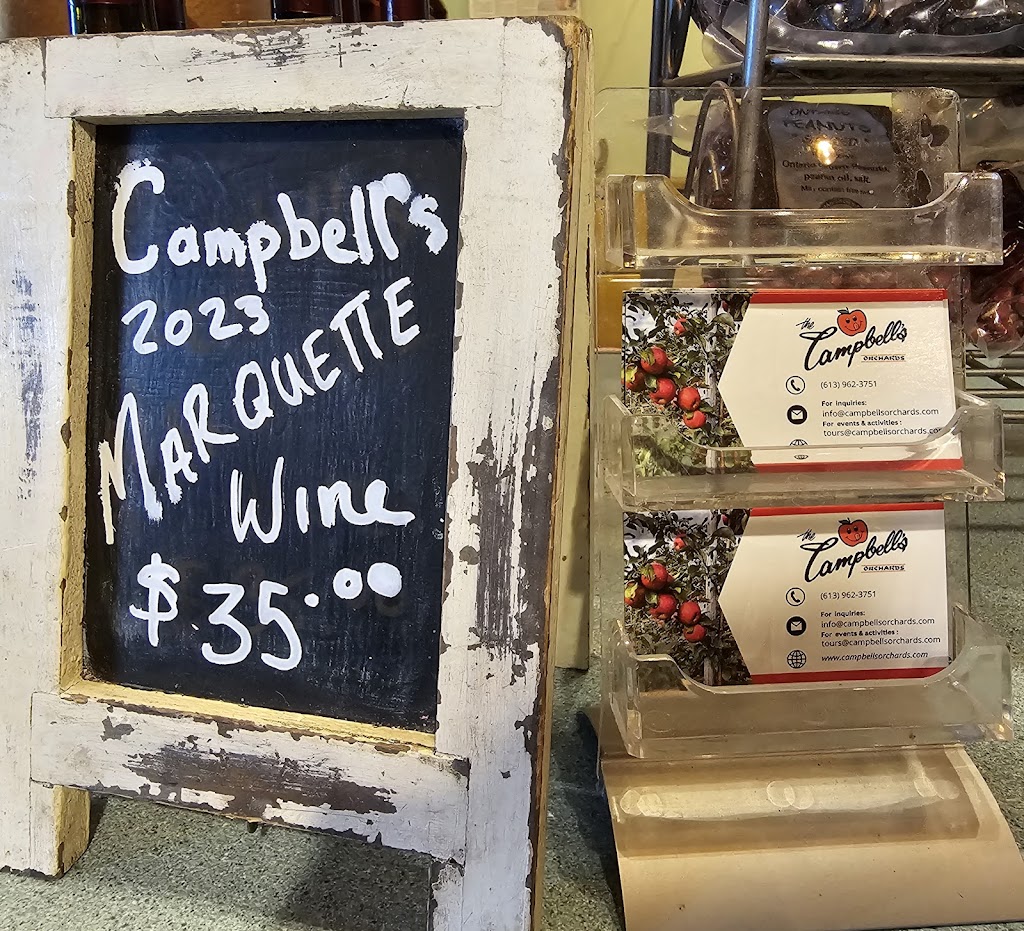 Campbell's
2023
MARQUETTE
Wine
$35.00
PEANUTS
peanut oil, salt.
the
Campbell's
ORCHARDS
(613) 962-3751
For inquiries:
info@campbellsorchards.com
For events & activities :
tours@campbellsorchards.com
the
Campbell's
ORCHARDS
(613) 962-3751
For inquiries:
info@campbellsorchards.com
For events & activities :
tours@campbellsorchards.com
www.campbellsorchards.com